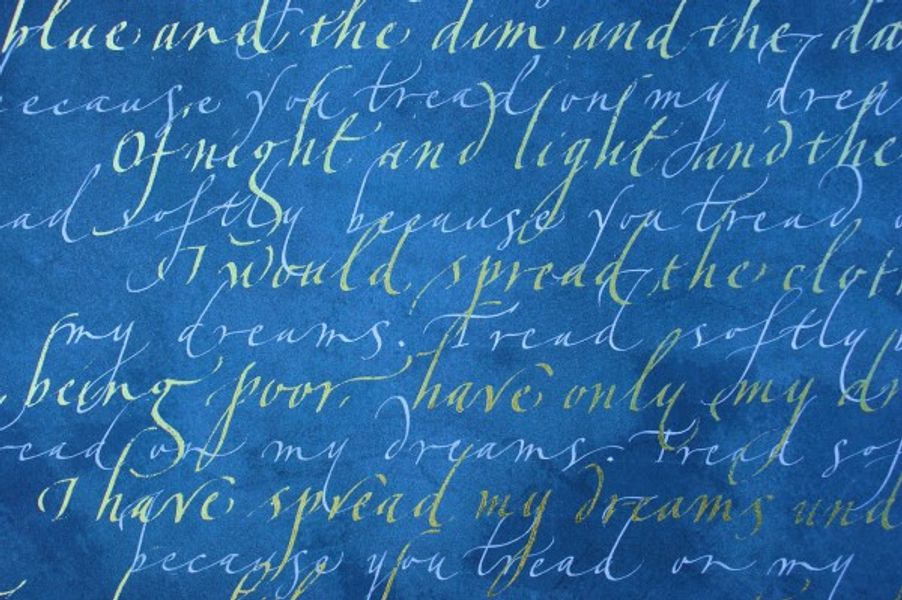 blue and the dim and the da
ecause you tread on my drea
Of night and light and the
ad softly because you tread
I would spread the clot
my dreams. Tread softly
being poor, have only my dr
read on my dreams. Tread sof
I have spread my dreams und
because you tread on my